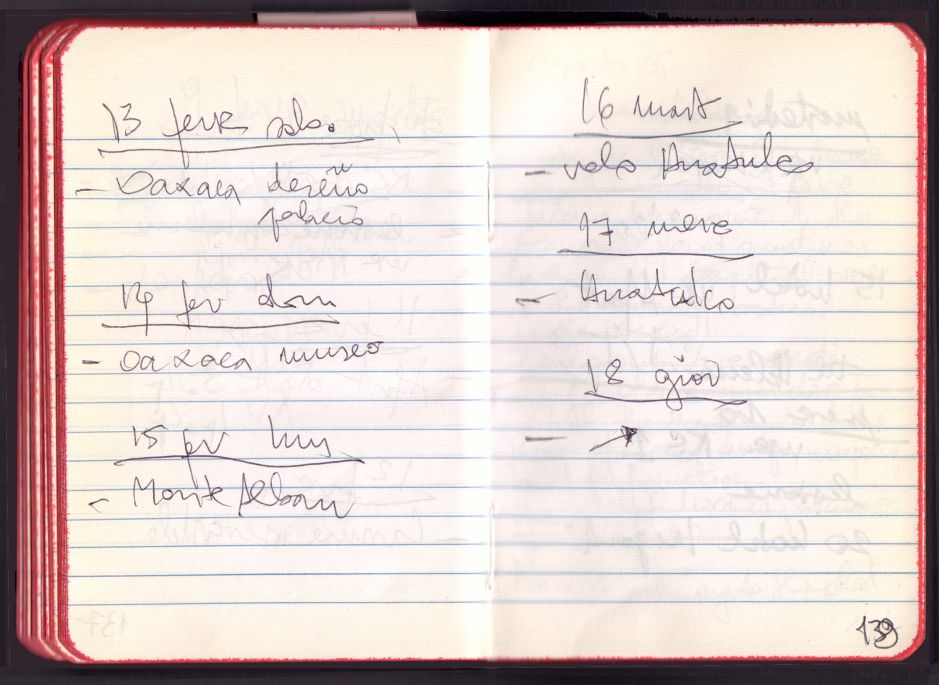 13 febr sab.
- Oaxaca deseño
palacio
14 fev dom
- Oaxaca museo
15 fev lun
- Monte Alban
16 mart
- volo Huatulco
17 merc
- Huatulco
18 giov
-
139